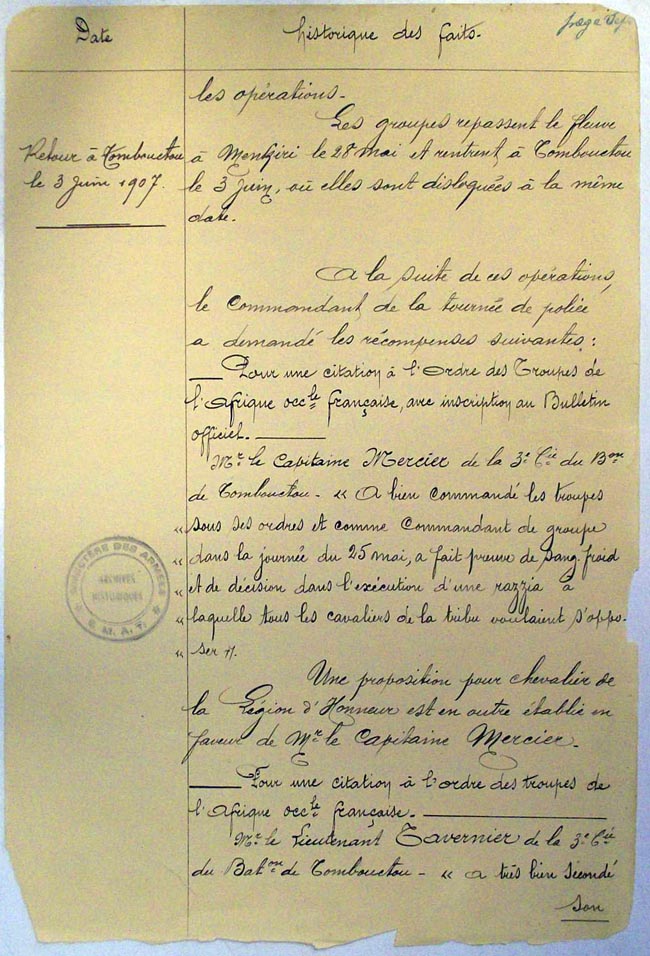 Date
historique des faits.
les opérations.
Les groupes repassent le fleuve
Retour à Tombouctou
le 3 Juin 1907.
à Menkiri le 28 mai et rentrent à Tombouctou
le 3 Juin, où elles sont disloquées à la même
date.
A la suite de ces opérations,
le Commandant de la tournée de police
a demandé les récompenses suivantes :
— Pour une citation à l'Ordre des Troupes de
l'Afrique occle française, avec inscription au Bulletin
officiel. —
Mr. le Capitaine Mercier de la 3e Cie du Bon
de Tombouctou - « A bien commandé les troupes
« sous ses ordres et comme Commandant de groupe
« dans la journée du 25 mai, a fait preuve de sang-froid
« et de décision dans l'exécution d'une razzia à
« laquelle tous les cavaliers de la tribu voulaient s'oppo-
« ser ».
MINISTÈRE DES ARMÉES
ARCHIVES
HISTORIQUES
E. M. A. T.
Une proposition pour Chevalier de
la Légion d'Honneur est en outre établie en
faveur de Mr le Capitaine Mercier.
— Pour une citation à l'ordre des troupes de
l'Afrique occle française. —
Mr. le Lieutenant Tavernier de la 3e Cie
du Baton de Tombouctou - « A très bien secondé
son